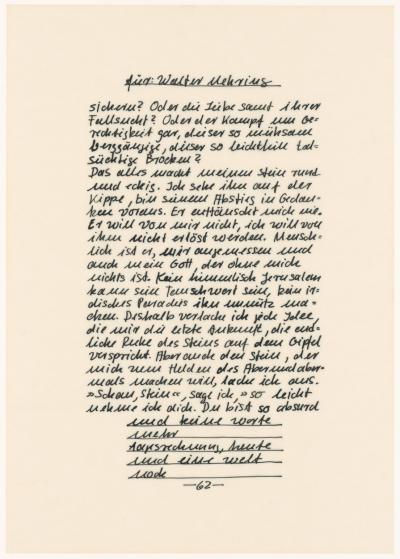 für: Walter Mehring
sichern? Oder die Liebe samt ihrer
Fallsucht? Oder der Kampf um Ge-
rechtigkeit gar, dieser so mühsam
berggängige, dieser so leichthin tal-
süchtige Brocken?
Das alles macht meinen Stein rund
und eckig. Ich sehe ihn auf der
Kippe, bin seinem Abstieg in Gedan-
ken voraus. Er enttäuscht mich nie.
Er will von mir nicht, ich will von
ihm nicht erlöst werden. Mensch-
lich ist er, mir angemessen und
auch mein Gott, der ohne mich
nichts ist. Kein himmlisch Jerusalem
kann sein Tauschwert sein, kein ir-
disches Paradies ihn unnütz ma-
chen. Deshalb verlache ich jede Idee,
die mir die letzte Ankunft, die end-
liche Ruhe des Steins auf dem Gipfel
verspricht. Aber auch den Stein, der
mich zum Helden des Aberundaber-
mals machen will, lache ich aus.
»Schau, Stein«, sage ich, »so leicht
nehme ich dich. Du bist so absurd
und keine worte
mehr
heute
und eine welt
noch
—62—